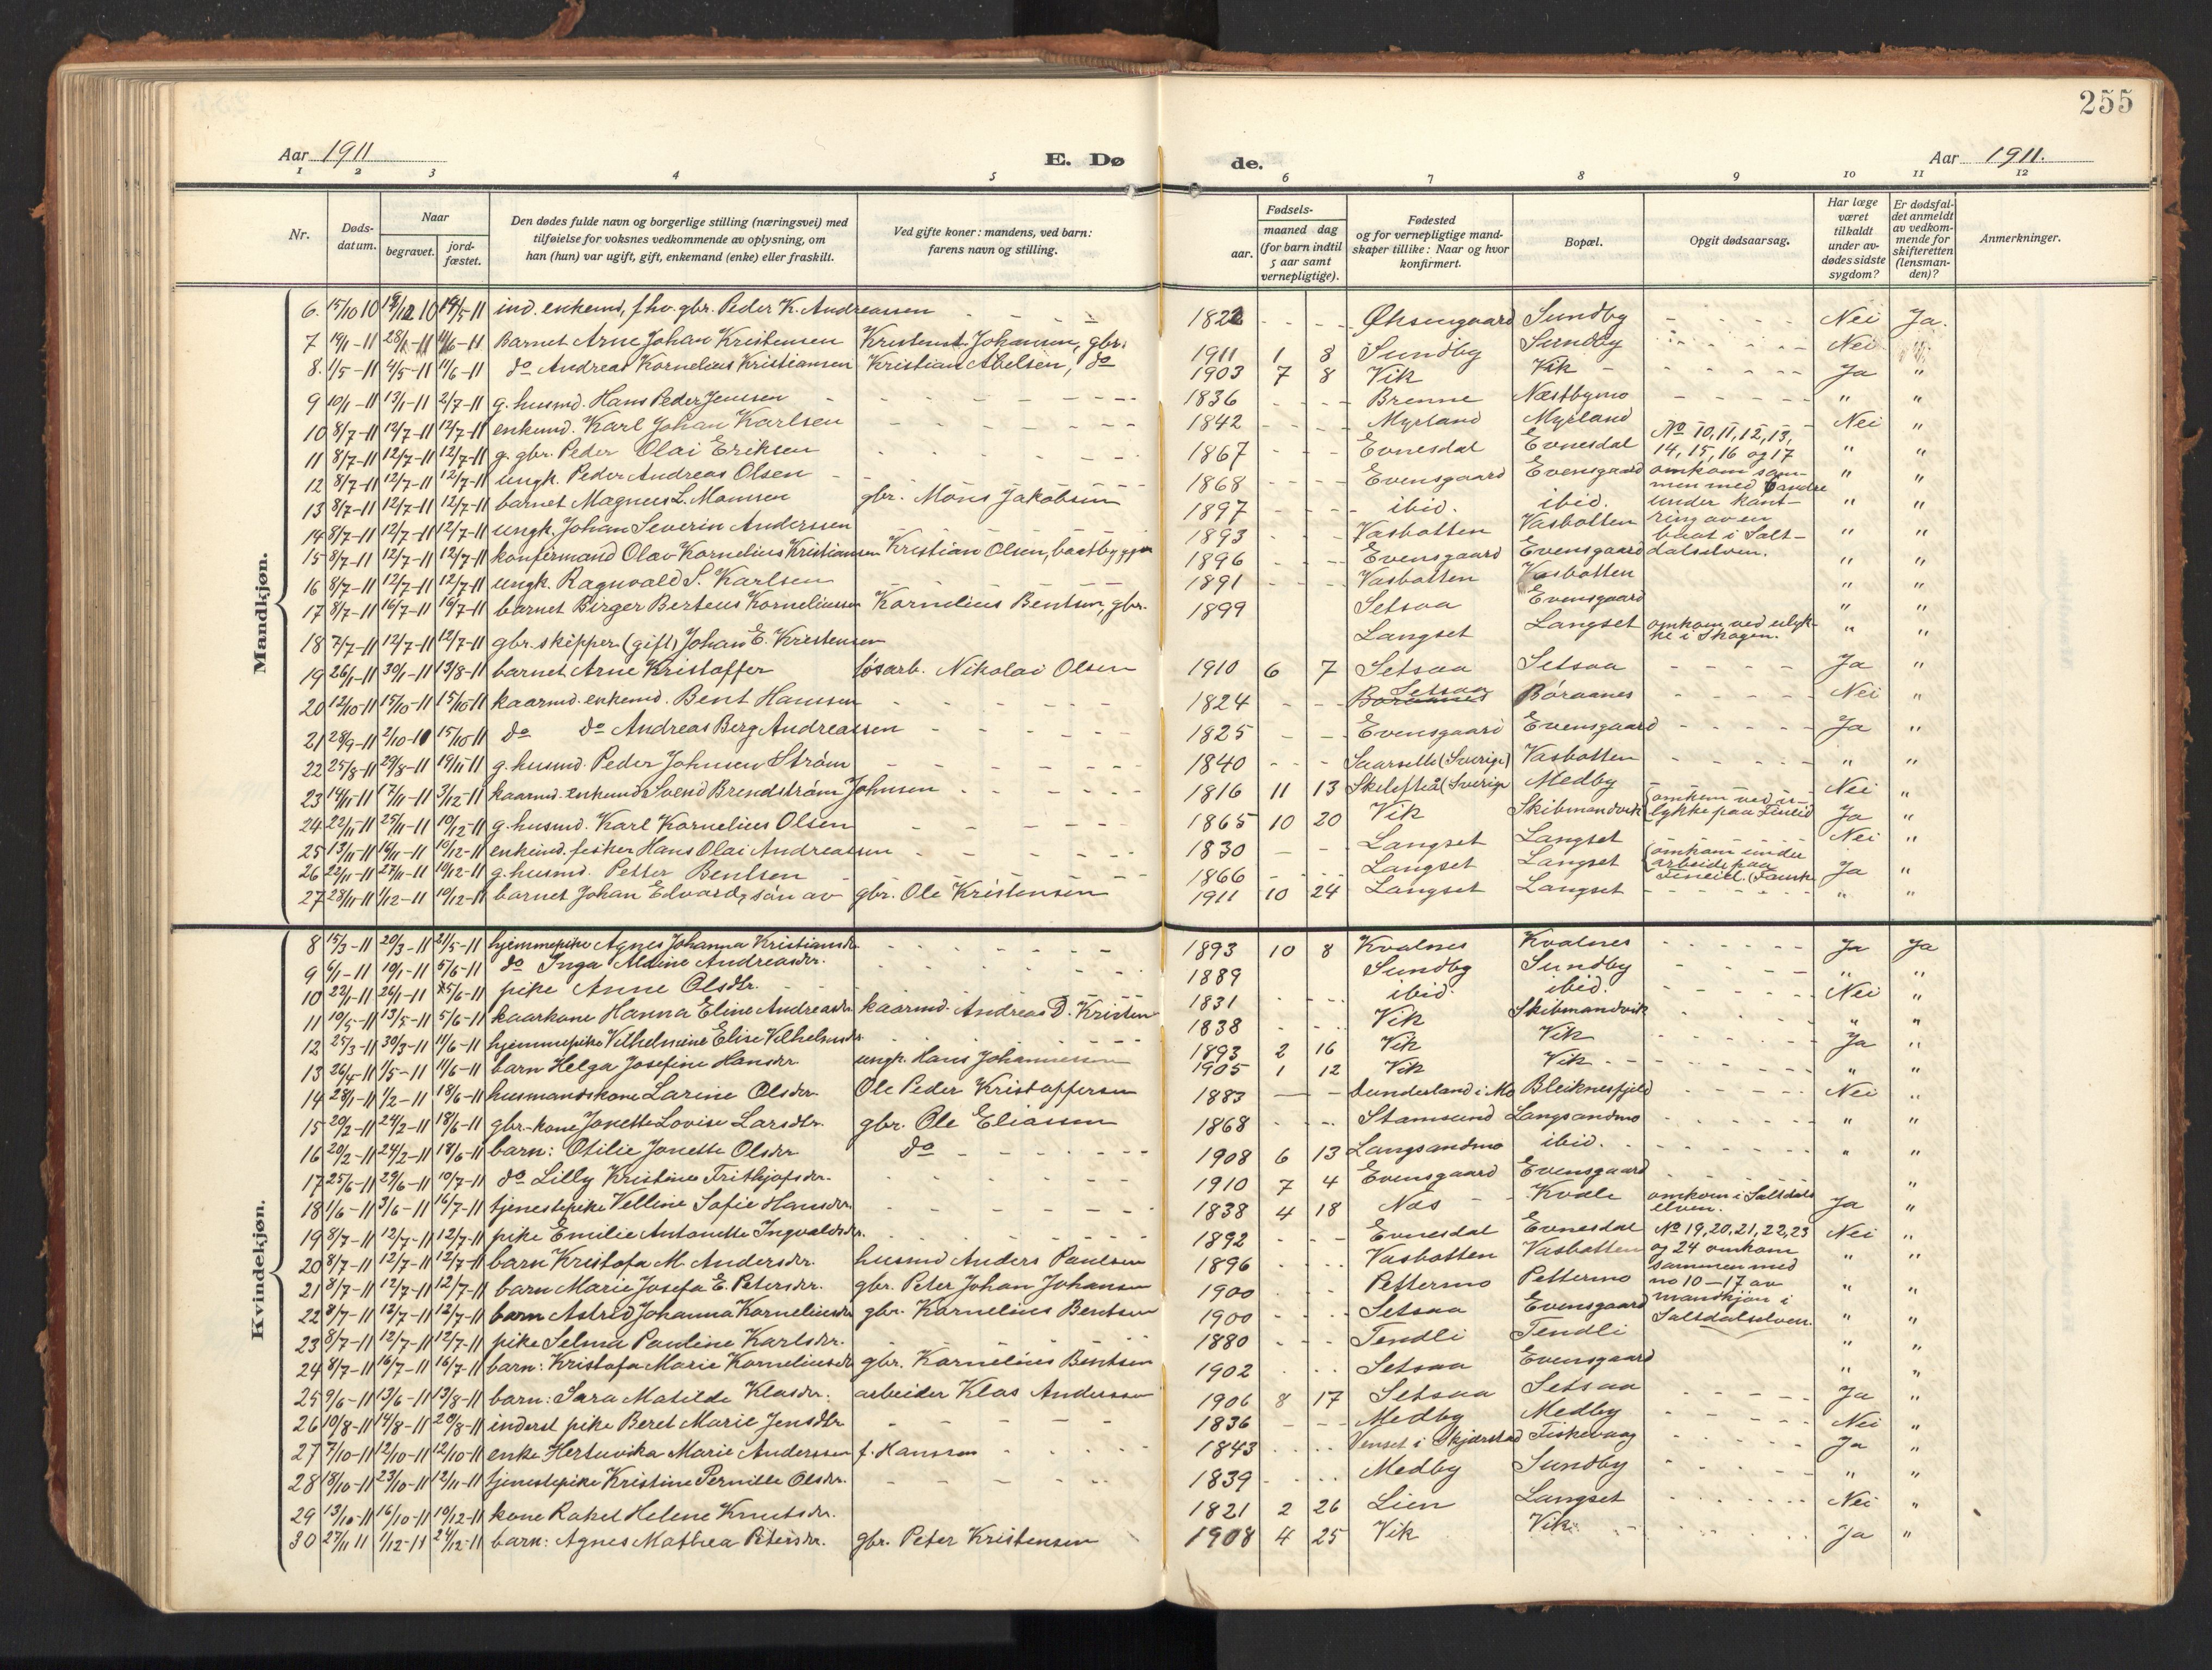 255
Aar 1911
E. Dø
de.
Aar 1911.
1 2 3 4 5 6 7 8 9 10 11 12
Nr.
Døds-
datum.
Naar
begravet.
jord-
fæstet.
Den dødes fulde navn og borgerlige stilling (næringsvei) med
tilføielse for voksnes vedkommende av oplysning, om
han (hun) var ugift, gift, enkemand (enke) eller fraskilt.
Ved gifte koner: mandens, ved barn:
farens navn og stilling.
Fødsels-
aar.
maaned dag
(for barn indtil
5 aar samt
vernepligtige).
Fødested
og for vernepligtige mand-
skaper tillike: Naar og hvor
konfirmert.
Bopæl.
Opgit dødsaarsag.
Har læge
været
tilkaldt
under av-
dødes sidste
sygdom?
Er dødsfal-
det anmeldt
av vedkom-
mende for
skifteretten
(lensman-
den)?
Anmerkninger.
Mandkjøn.
6. 15/10 10 ind. enkemd, fhv. gbr. Peder K. Andreassen 1822 Øksengaard Sundby Nei Ja.
7 19/1-11 Barnet Arne Johan Kristensen Johansen, gbr. 1911 1 8 Sundby Sundby Nei
8. 1/5-11 4/5-11 11/6-11 do Andreas Kornelius Kristiansen Kristian Abelsen, do 1903 7 8 Vik Vik Ja "
9 10/1-11 13/1-11 2/7-11 g. husmd. Hans Peder Jensen 1836 Brenne Næstbymo " "
10 8/7-11 12/7-11 12/7-11 enkemd. Karl Johan Karlsen 1842 Myrland Myrland Nei "
11 8/7-11 12/7-11 12/7-11 g. gbr. Peder Olai Eriksen 1867 Evnesdal Evnesdal No 10, 11, 12, 13, " "
12 8/7-11 12/7-11 12/7-11 ungk. Peder Andreas Olsen 1868 Evensgaard Evensgaard 14, 15, 16 og 17 " "
13 8/7-11 12/7-11 12/7-11 barnet Magnus L. Monsen gbr. Mons Jakobsen 1897 ibid. ibid. omkom sam-
men med 6 andre " "
14 8/7-11 12/7-11 12/7-11 ungk. Johan Severin Anderssen 1893 Vasbotten Vasbotten under kant-
ring av en " "
15 8/7-11 12/7-11 12/7-11 konfirmand Olav Kornelius Kristiansen Kristian Olsen, 1896 Evensgaard Evensgaard baat i Salt-
dalselven. " "
16 8/7-11 12/7-11 12/7-11 ungk. Ragnvald S. Karlsen 1891 Vasbotten Vasbotten " "
17 8/7-11 16/7-11 16/7-11 barnet Birger Berteus Korneliussen Kornelius Bentsen, gbr. 1899 Setsaa Evensgaard " "
18 7/7-11 12/7-11 12/7-11 gbr. skipper (gift) Johan E. Kristensen Langset Langset omkom ved ulyk-
ke i Skogen. " "
19 26/1-11 30/1-11 13/8-11 barnet Arne Kristoffer løsarb. Nikolai Olsen 1910 6 7 Setsaa Setsaa Ja "
20 12/10-11 15/10-11 15/10-11 kaarmd. enkemd. Bent Hansen 1824 Setsaa Boraanes Børaanes Nei "
21 28/9-11 2/10-11 15/10-11 do do Andreas Berg Andreassen 1825 Evensgaard Evensgaard Ja "
22 25/8-11 29/8-11 19/11 11 g. husmd. Peder Johnsen Strøm 1840 Saarselle (Sverige) Vasbotten " "
23 14/11-11 17/11-11 3/12-11 kaarmd. enkemd Svend Brendstrøm Johnsen 1816 11 13 Skelefteå (Sverige Medby Nei "
24 22/11-11 25/11-11 10/12-11 g. husmd. Karl Kornelius Olsen 1865 10 20 Vik Skibmandvik omkom ved u-
lykke paa Fineid Ja "
25 13/11-11 19/11-11 10/12-11 enkemd. fisker Hans Olai Andreassen 1830 Langset Langset Nei "
26 22/11-11 27/11-11 10/12-11 g. husmd. Petter Bentsen 1866 Langset Langset omkom under
arbeide paa
Fineid (Fausk Ja "
27 28/11-11 1/12-11 10/12-11 barnet Johan Edvard, søn av gbr. Ole Kristensen 1911 10 24 Langset Langset " "
Kvindekjøn.
8 15/3-11 20/3-11 21/5-11 hjemmepike Agnes Johanna Kristiansdr. 1893 10 8 Kvalnes Kvalnes Ja Ja
9 6/1-11 10/1-11 5/6-11 do Inga Aldine Andreasdr. 1889 Sundby Sundby " "
10 22/1-11 26/1-11 5/6-11 pike Anne Olsdtr. 1831 ibid. ibid. Nei "
11 10/5-11 13/5-11 5/6-11 kaarkone Hanna Eline Andreasdr kaarmd. Andreas D. Kristen 1838 Vik Skibmandvik " "
12 25/3-11 30/3-11 11/6-11 hjemmepike Vilhelmine Elise Vilhelmsdr. 1893 2 16 Vik Vik Ja "
13 26/4-11 1/5-11 11/6-11 barn Helga Josefine Hansdr. ungk. Hans Johannessen 1905 1 12 Vik Vik " "
14 28/1-11 1/2-11 18/6-11 husmandskone Larine Olsdr. Ole Peder Kristoffersen 1883 Dunderland i Mo Bleiknesfjeld Nei "
15 20/2-11 24/2-11 18/6-11 gbr.-kone Jonette Lovise Larsdtr. gbr. Ole Eliassen 1868 Stamsund Langsandmo " "
16 20/2-11 24/2-11 18/6-11 barn: Otilie Jonette Olsdr do 1908 6 13 Langsandmo ibid. " "
17 25/6-11 29/6-11 10/7-11 do Lilly Kristine Frithjofsdr. 1910 7 4 Evensgaard Evensgaard "
18 1/6-11 3/6-11 16/7-11 tjenestepike Velline Sofie Hansdr. 1838 4 18 Nes Kvale omkom i Saltdals
elven. Ja "
19 8/7-11 12/7-11 12/7-11 pike Emilie Antonette Ingvaldsdr. 1892 Evnesdal Evnesdal No 19, 20, 21, 22, 23 Nei "
20 8/7-11 12/7-11 12/7-11 barn Kristofa M. Andersdr. husmd Anders Paulsen 1896 Vasbotten Vasbotten og 24 omkom " "
21 8/7-11 12/7-11 12/7-11 barn Marie Josefa E. Petersdr. gbr. Peter Johan Johansen 1900 Pettermo Pettermo sammen med
no 10-17 av " "
22 8/7-11 12/7-11 12/7-11 barn Astrid Johanna Korneliusdr gbr. Kornelius Bentsen 1900 Setsaa Evensgaard mandkjøn i
Saltdalselven. " "
23 8/7-11 12/7-11 12/7-11 pike Selma Pauline Karlsdr. 1880 Tendli Tendli " "
24 8/7-11 16/7-11 16/7-11 barn: Kristofa Marie Korneliusdr gbr. Kornelius Bentsen 1902 Setsaa Evensgaard " "
25 9/6-11 13/6-11 13/8-11 barn: Sara Matilde Klasdr. arbeider Klas Andersen 1906 8 17 Setsaa Setsaa Ja "
26 10/8-11 14/8-11 20/8-11 inderst pike Beret Marie Jensdtr 1836 Medby Medby Nei "
27 7/10-11 12/10-11 12/10-11 enke Hertuvika Marie Anderssen f. Hansen 1843 Venset i Skjærstad Fiskevaag Ja "
28 18/10-11 23/10-11 12/11-11 tjenestepike Kristine Pernille Olsdr. 1839 Medby Sundby " "
29 13/10-11 16/10-11 10/12-11 kone Rakel Helene Knutsdr. 1821 2 26 Lien Langset Nei "
30 27/11 11 1/12-11 24/12-11 barn: Agnes Mathea Petersdr. gbr. Peter Kristensen 1908 4 25 Vik Vik Ja "